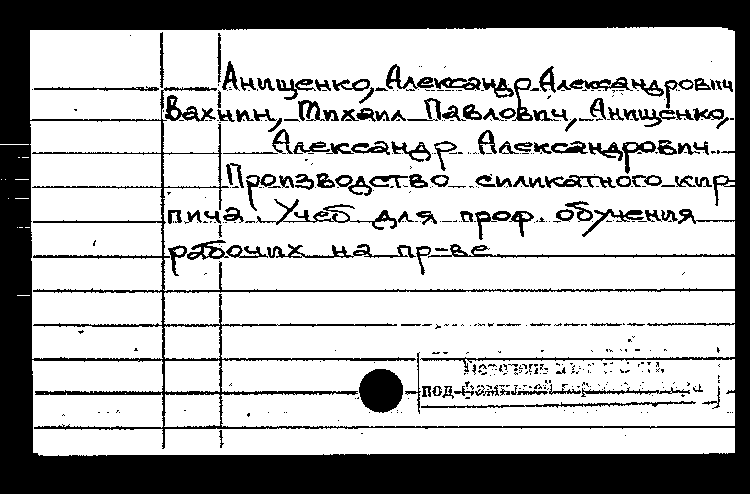 Анищенко, Александр Александрович
Вахнин, Михаил Павлович, Анищенко,
Александр Александрович.
Производство силикатного кир-
пича. Учеб для проф. обучения
рабочих на пр-ве
под фамилией